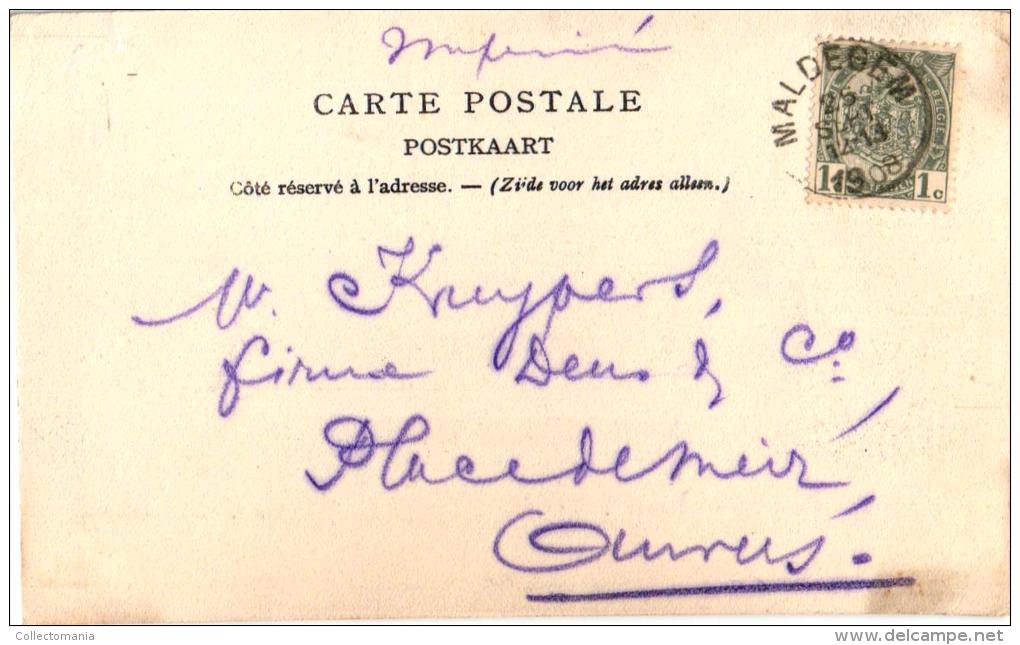 Imprimé
CARTE POSTALE
POSTKAART
Côté réservé à l'adresse. — (Zijde voor het adres alleen.)
MALDEGEM
1908
1c 1c
M. Kruypers,
firme Deus & Co.
Place de Meir,
Anvers.
Collectomania
delcampe.net